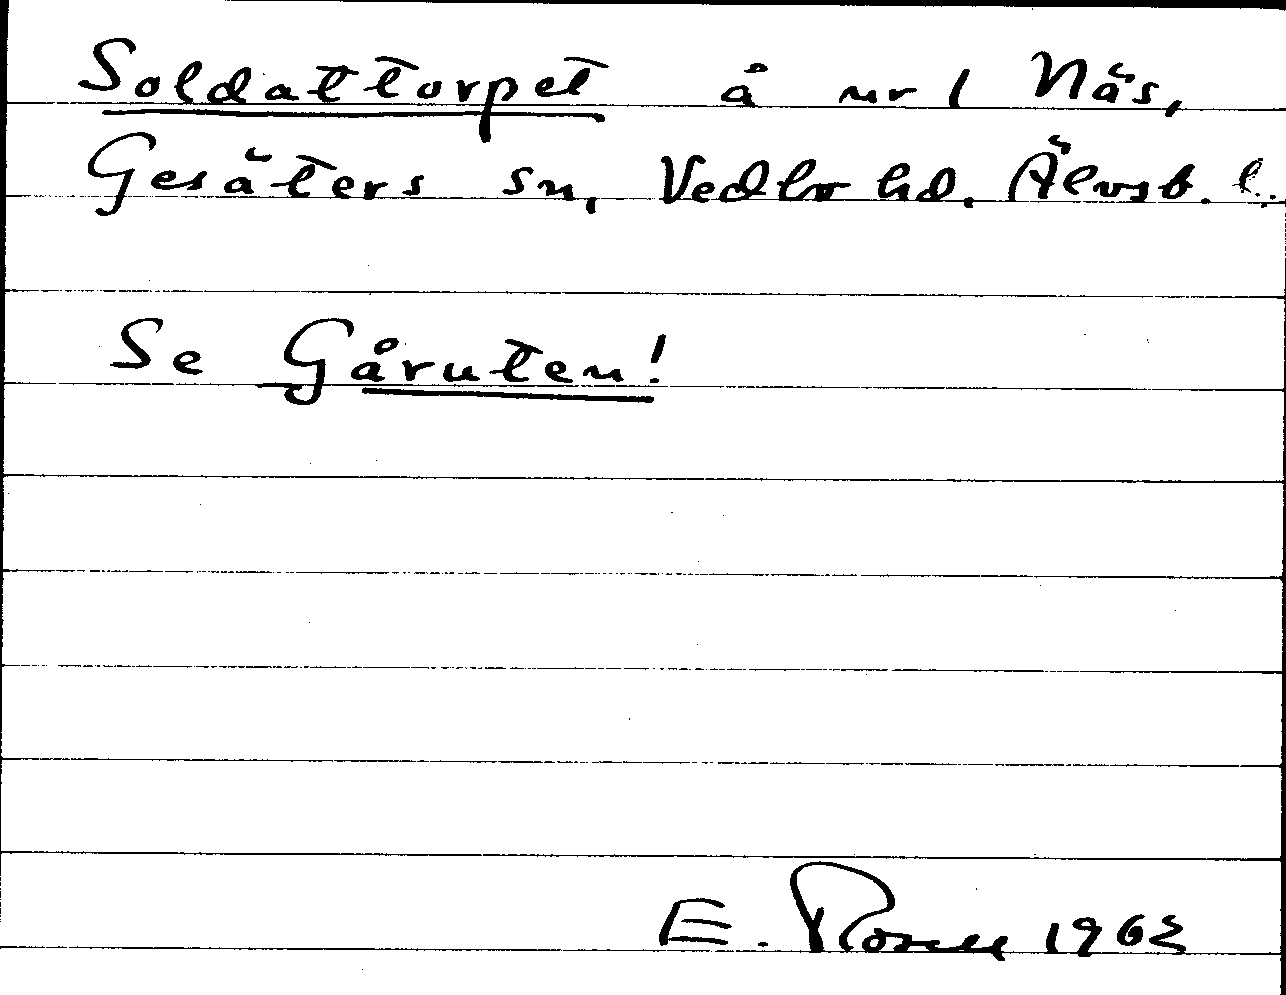 Soldattorpet å nr 1 Näs,
Gesäters sn, Vedbo hd. Älvsb. l.
Se Gåruten!
E. Rosell 1962